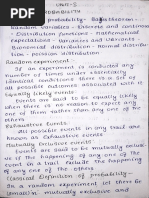 UNIT-3
PROBABILITY
probability - Basic theorem -
Random variables - Discrete and continuous
- Distribution functions - Mathematical
Expectations - Variance and
Binomial distribution - Normal distribu
tion - poisson distribution
Random experiment:
If an experiment is conducted any
number of times under essentially
identical conditions there is a set of
all possible outcomes associated
Equally likely events:
Events are said to be equally likely
when there is no reason to expect any
one of them rather than any one of
the others
Exhaustive Events:
All possible events in any trial are
known as Exhaustive events
Mutually Exclusive Events:
Events are said to be mutually exclus
ive if the happening of any one of the
event in a trial exclude the happening
of any one of the others
Classical definition of probability -
In a random experiment let there be
n mutually exclusive and